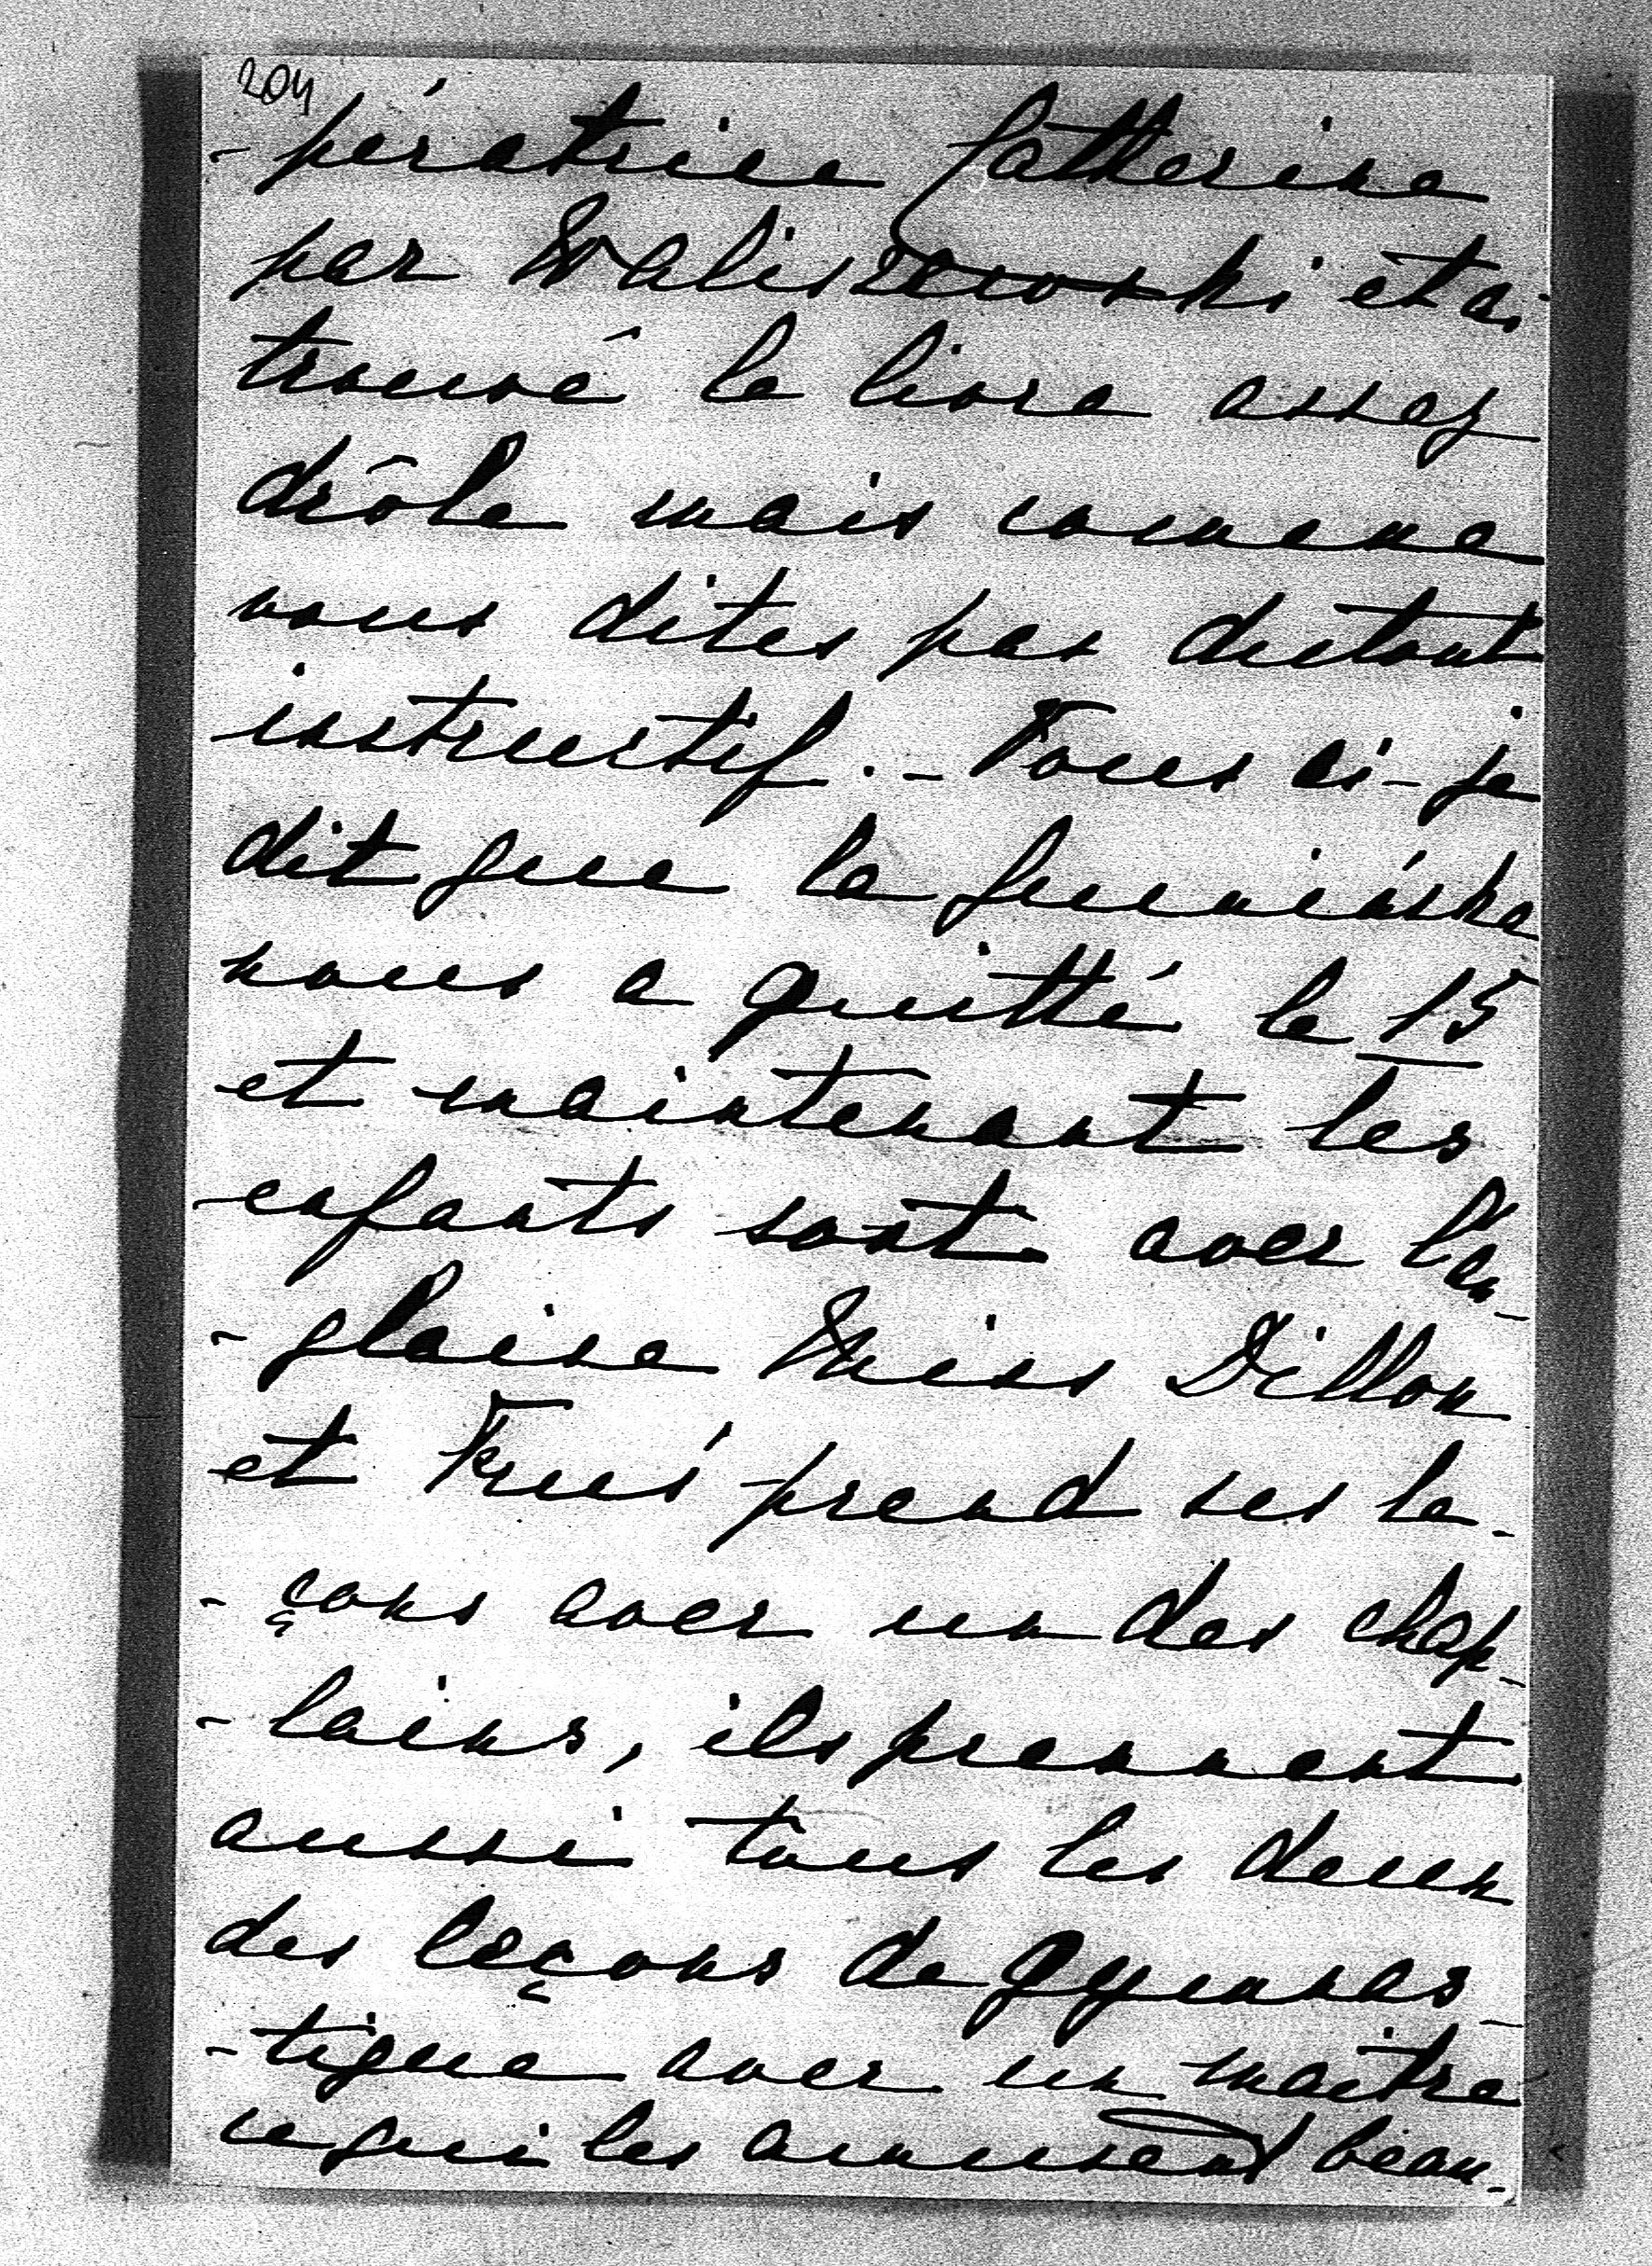 204
-pératrice Catherine
par Waliszewski et a
trouvé le livre assez
drôle mais comme
vous dites pas dutout
instructif. - Vous ai-je
dit que la
nous a quitté le 15
et maintenant les
enfants sont avec l'an-
-glaise Miss Dillon
et prend ses le-
-çons avec un des chap-
-lains, ils prennent
aussi tous les deux
des leçons de gymnas-
-tique avec un maître
ce qui les amusent beau-